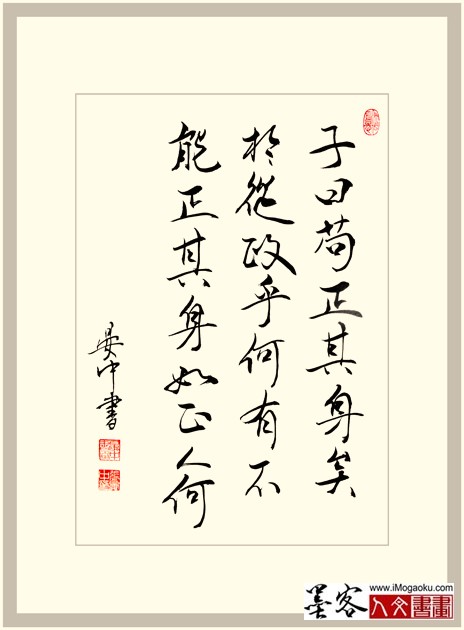 子曰苟正其身矣
於從政乎何有不
能正其身如正人何
晏中書
www.iMogaoku.com
墨客人文書畫